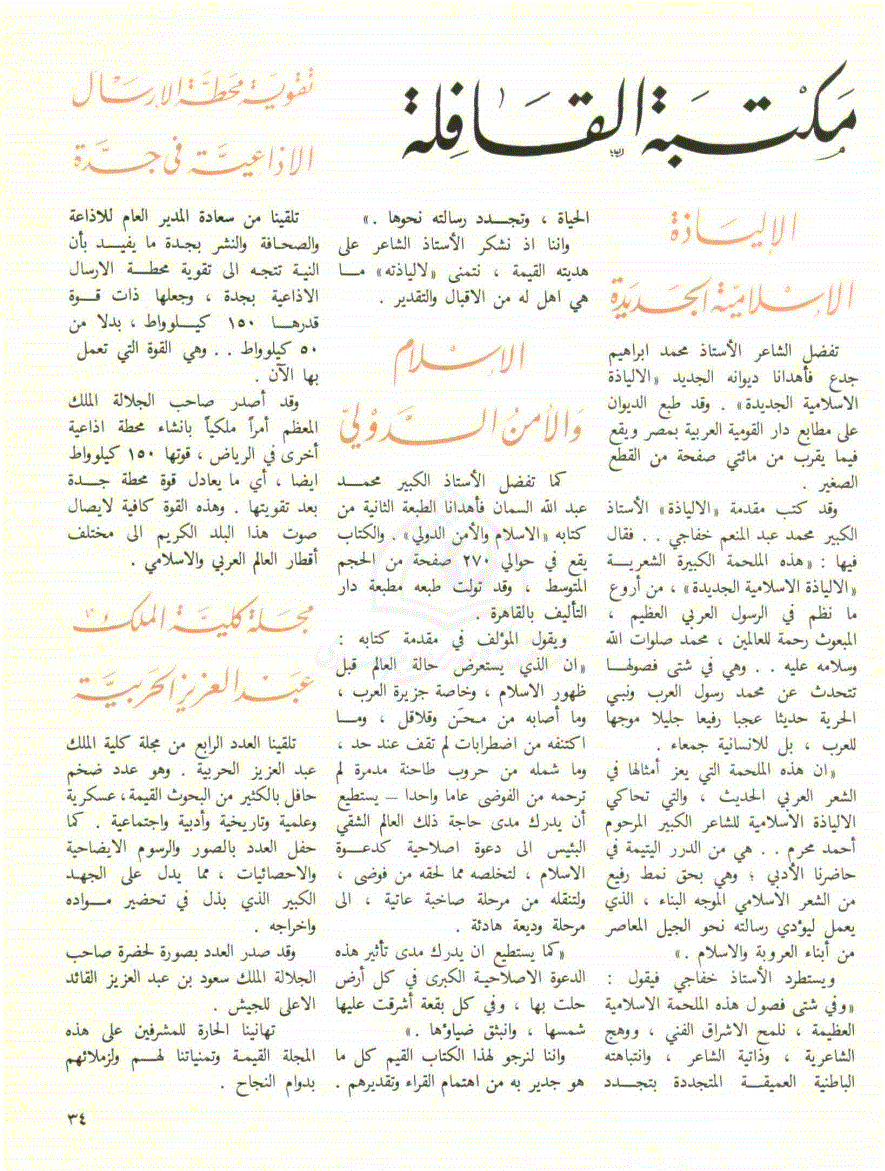 مكتبة القافلة
الإلياذة
الإسلامية الجديدة
تفضل الشاعر الأستاذ محمد ابراهيم
جدع فأهدانا ديوانه الجديد «الالياذة
الاسلامية الجديدة» . وقد طبع الديوان
على مطابع دار القومية العربية بمصر ويقع
فيما يقرب من مائتي صفحة من القطع
الصغير .
وقد كتب مقدمة «الالياذة» الأستاذ
الكبير محمد عبد المنعم خفاجي . . فقال
فيها : «هذه الملحمة الكبيرة الشعرية
«الالياذة الاسلامية الجديدة» ، من أروع
ما نظم في الرسول العربي العظيم ،
المبعوث رحمة للعالمين ، محمد صلوات الله
وسلامه عليه . . وهي في شتى فصولها
تتحدث عن محمد رسول العرب ونبي
الحرية حديثا عجبا رفيعا جليلا موجها
للعرب ، بل للانسانية جمعاء .
«ان هذه الملحمة التي يعز أمثالها في
الشعر العربي الحديث ، والتي تحاكي
الالياذة الاسلامية للشاعر الكبير المرحوم
أحمد محرم . . هي من الدرر اليتيمة في
حاضرنا الأدبي ؛ وهي بحق نمط رفيع
من الشعر الاسلامي الموجه البناء ، الذي
يعمل ليؤدي رسالته نحو الجيل المعاصر
من أبناء العروبة والاسلام .»
ويستطرد الأستاذ خفاجي فيقول :
«وفي شتى فصول هذه الملحمة الاسلامية
العظيمة ، نلمح الاشراق الفني ، ووهج
الشاعرية ، وذاتية الشاعر ، وانتباهته
الباطنية العميقة المتجددة بتجدد
الحياة ، وتجدد رسالته نحوها .»
واننا اذ نشكر الأستاذ الشاعر على
هديته القيمة ، نتمنى «لالياذته» ما
هي اهل له من الاقبال والتقدير .
الإسلام
والأمن الدولي
كما تفضل الأستاذ الكبير محمد
عبد الله السمان فأهدانا الطبعة الثانية من
كتابه «الاسلام والأمن الدولي» . والكتاب
يقع في حوالي ٢٧٠ صفحة من الحجم
المتوسط ، وقد تولت طبعه مطبعة دار
التأليف بالقاهرة .
ويقول المؤلف في مقدمة كتابه :
«ان الذي يستعرض حالة العالم قبل
ظهور الاسلام ، وخاصة جزيرة العرب ،
وما أصابه من محن وقلاقل ، وما
اكتنفه من اضطرابات لم تقف عند حد ،
وما شمله من حروب طاحنة مدمرة لم
ترحمه من الفوضى عاما واحدا – يستطيع
أن يدرك مدى حاجة ذلك العالم الشقي
البئيس الى دعوة اصلاحية كدعوة
الاسلام ، لتخلصه مما لحقه من فوضى ،
ولتنقله من مرحلة صاخبة عاتية ، الى
مرحلة وديعة هادئة .
«كما يستطيع ان يدرك مدى تأثير هذه
الدعوة الاصلاحية الكبرى في كل أرض
حلت بها ، وفي كل بقعة أشرقت عليها
شمسها ، وانبثق ضياؤها .»
واننا لنرجو لهذا الكتاب القيم كل ما
هو جدير به من اهتمام القراء وتقديرهم .
تقوية محطة الإرسال
الاذاعية في جدة
تلقينا من سعادة المدير العام للاذاعة
والصحافة والنشر بجدة ما يفيد بأن
النية تتجه الى تقوية محطة الارسال
الاذاعية بجدة ، وجعلها ذات قوة
قدرها ١٥٠ كيلوواط ، بدلا من
٥٠ كيلوواط . . وهي القوة التي تعمل
بها الآن .
وقد أصدر صاحب الجلالة الملك
المعظم أمراً ملكياً بانشاء محطة اذاعية
أخرى في الرياض ، قوتها ١٥٠ كيلوواط
ايضا ، أي ما يعادل قوة محطة جدة
بعد تقويتها . وهذه القوة كافية لايصال
صوت هذا البلد الكريم الى مختلف
أقطار العالم العربي والاسلامي .
مجلة كلية الملك
عبد العزيز الحربية
تلقينا العدد الرابع من مجلة كلية الملك
عبد العزيز الحربية . وهو عدد ضخم
حافل بالكثير من البحوث القيمة، عسكرية
وعلمية وتاريخية وأدبية واجتماعية . كما
حفل العدد بالصور والرسوم الايضاحية
والاحصائيات ، مما يدل على الجهد
الكبير الذي بذل في تحضير مواده
واخراجه .
وقد صدر العدد بصورة لحضرة صاحب
الجلالة الملك سعود بن عبد العزيز القائد
الاعلى للجيش .
تهانينا الحارة للمشرفين على هذه
المجلة القيمة وتمنياتنا لهم ولزملائهم
بدوام النجاح .
٣٤